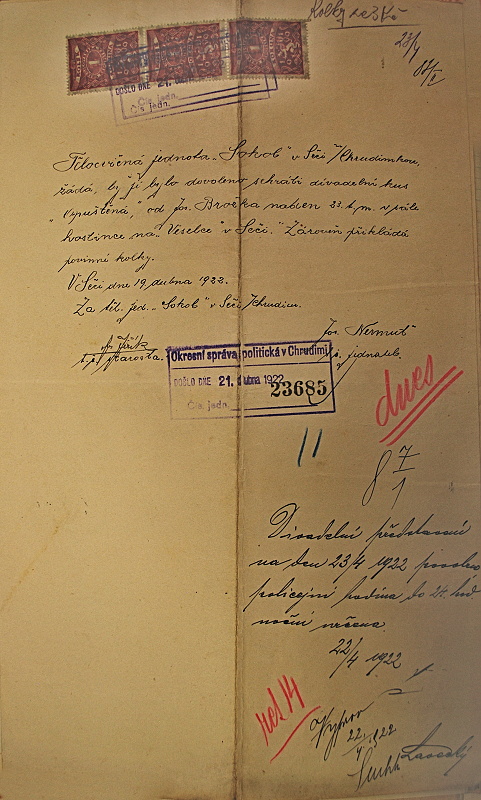 Kolky za 3 Kč
23/4
DOŠLO DNE 21.
Čís. jedn.
Tělocvičná jednota „Sokol" v Seči /Chrudimkou,
žádá, by jí bylo dovoleno sehráti divadelní kus
„Vypuštěná," od Jos. Bročka na den 23. t. m. v sále
hostince na „Veselce" v Seči. Zároveň přikládá
povinné kolky.
V Seči dne 19. dubna 1922.
Za těl. jed. „Sokol" v Seči /Chrudim.
Jos. Nermuť
t. č. starosta.
t. č. jednatel.
Okresní správa politická v Chrudimi
DOŠLO DNE 21. dubna 1922
23685
Čís. jedn.
dnes
11
8 7/1
Divadelní představení
na den 23/4 1922 povoleno
policejní hodina do 24. hod
noční určena.
22/4 1922
Vyprav
22/4 1922